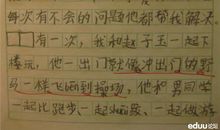 每次有不会的问题他都帮我解决。
有一次，我和赵子玉一起下
楼玩，他一出门就像冲出门的野
马一样飞奔到操场，他和男同学
一起比跑步、一起
一起做游
eduu论坛